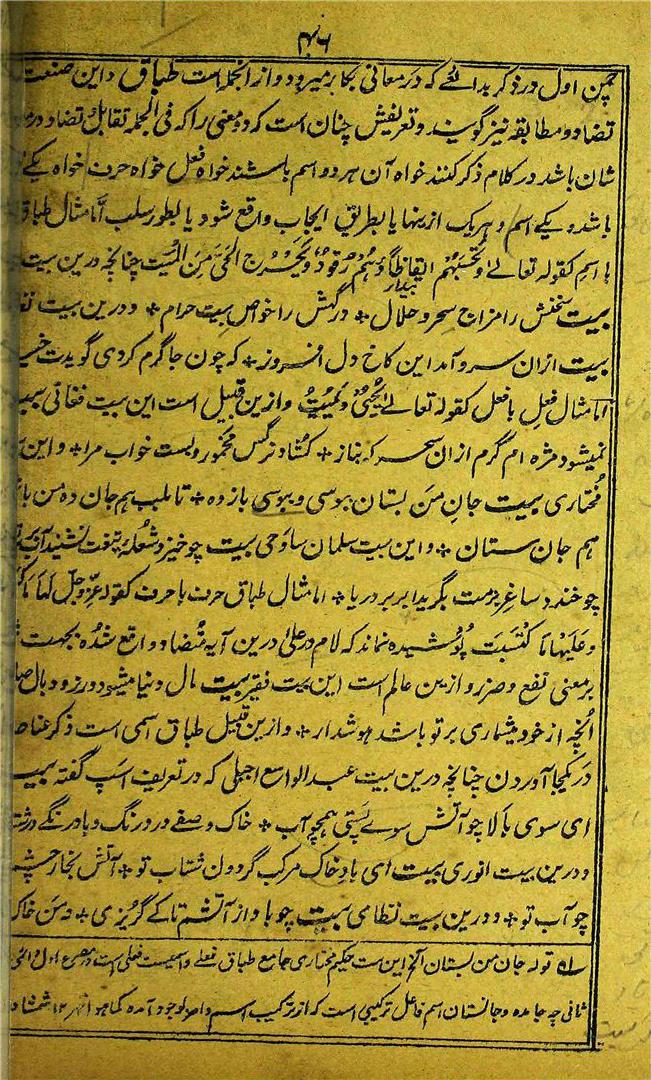 ۴۶
چمن اول در ذکر بدائعے که در معانی بکار میرود و از انجمله است طباق و این صنعت
تضاد و مطابقه نیز گویند و تعریفش چنان است که دو معنی را که فی الجمله تقابل و تضاد در
شان باشد در کلام ذکر کنند خواه آن هر دو اسم باشند خواه فعل خواه حرف خواه یکے
باشد و یکے اسم و هریک ازینها یا بطریق ایجاب واقع شود یا بطور سلب امّا مثال طباق
با اسم کقوله تعالے وَتَحْسَبُهُم اَیْقَاظًا وَّهُمْ رُقُودٌ وَیُخْرِجُ الحَیَّ مِنَ المَیِّتِ چنانچه درین بیت
بیدار
بیت سخنش را مزاج سحر و حلال * درگهش را خواص بیت حرام * و درین بیت
بیت ازان سرو آمد این کاخ دل افروز * که چون جا گرم کردی گویدت خیز
اما مثال فعل با فعل کقوله تعالے یُحْیِیْ وَیُمِیْتُ و ازین قبیل است این بیت فغانی
نمیشود مژه ام گرم ازان سحر که بناز * کشاد نرگس مخمور و بست خواب مرا * و این
مختاری بیت جانِ من بستان ببوسی و ببوسی باز ده * تا بلب هم جان ده من
هم جان ستان * و این بیت سلمان ساوجی بیت چو خیزد شعله
چو خندد ساغر بزمت بگرید ابر بر دریا * اما مثال طباق حرف با حرف کقوله عزّ و جلّ لَهَا مَا
وَعَلَیْهَا مَا کْتَسَبَت پوشیده نماند که لام و علیٰ درین آیه متضاد واقع شده بجهت
بر معنی نفع و ضرر و ازین عالم است این بیت فقیر بیت مال دنیا میشود روز و بال
انچه از خود میشماری بر تو باشد هوشدار * و ازین قبیل طباق اسمی است ذکر
در یکجا آوردن چنانچه درین بیت عبد الواسع اجبلی که در تعریف اسپ گفته
ای سوی بالا چو آتش سوے پستی همچو آب * خاک وصفے در درنگ و باد رنگے در
و درین بیت انوری بیت ای بادِ خاک مرکب گردون شتاب تو * آتش بخار
چو آب تو * و درین بیت نظامی بیت چو باد از آتشم تا کے گریزی * نه من خاک
سله قوله جان من بستان آلخ این بیت حکیم مختاری جامع طباق فعلے و اسمیست فعلی است در مصرع اول و
ثانی چه جان ده و جانستان اسم فاعل ترکیبی است که از ترکیب اسم و امر بوجود آمده کما هو اظهر ۱۲